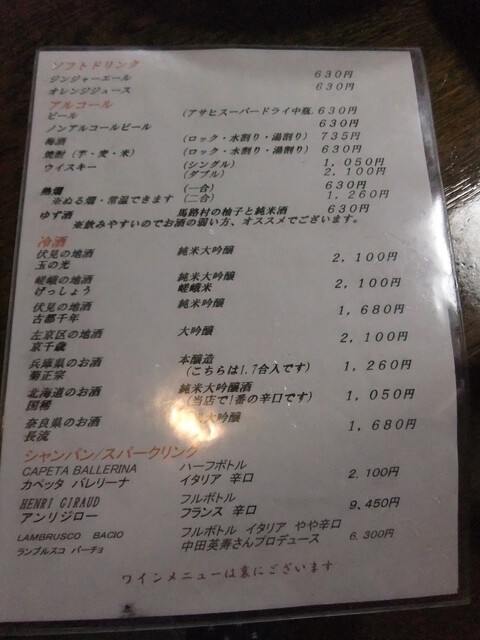 ソフトドリンク
ジンジャーエール 630円
オレンジジュース 630円
アルコール
ビール (アサヒスーパードライ中瓶) 630円
ノンアルコールビール 630円
梅酒 (ロック・水割り・湯割り) 735円
焼酎(芋・麦・米) (ロック・水割り・湯割り) 630円
ウイスキー (シングル) 1,050円
(ダブル) 2,100円
熱燗 (一合) 630円
※ぬる燗・常温できます (二合) 1,260円
ゆず酒 馬路村の柚子と純米酒 630円
※飲みやすいのでお酒の弱い方、オススメでございます。
冷酒
伏見の地酒 純米大吟醸 2,100円
玉の光
嵯峨の地酒 純米大吟醸 2,100円
げっしょう 嵯峨米
伏見の地酒 純米吟醸 1,680円
古都千年
左京区の地酒 大吟醸 2,100円
京千歳
兵庫県のお酒 本醸造 1,260円
菊正宗 (こちらは1.7合入です)
北海道のお酒 純米大吟醸酒 1,050円
国稀 (当店で1番の辛口です)
奈良県のお酒 大吟醸 1,680円
長流
シャンパン/スパークリング
CAPETA BALLERINA ハーフボトル 2,100円
カペッタ バレリーナ イタリア 辛口
HENRI GIRAUD フルボトル 9,450円
アンリジロー フランス 辛口
LAMBRUSCO BACIO フルボトル イタリア やや辛口 6,300円
ランブルスコ バーチョ 中田英寿さんプロデュース
ワインメニューは裏にございます